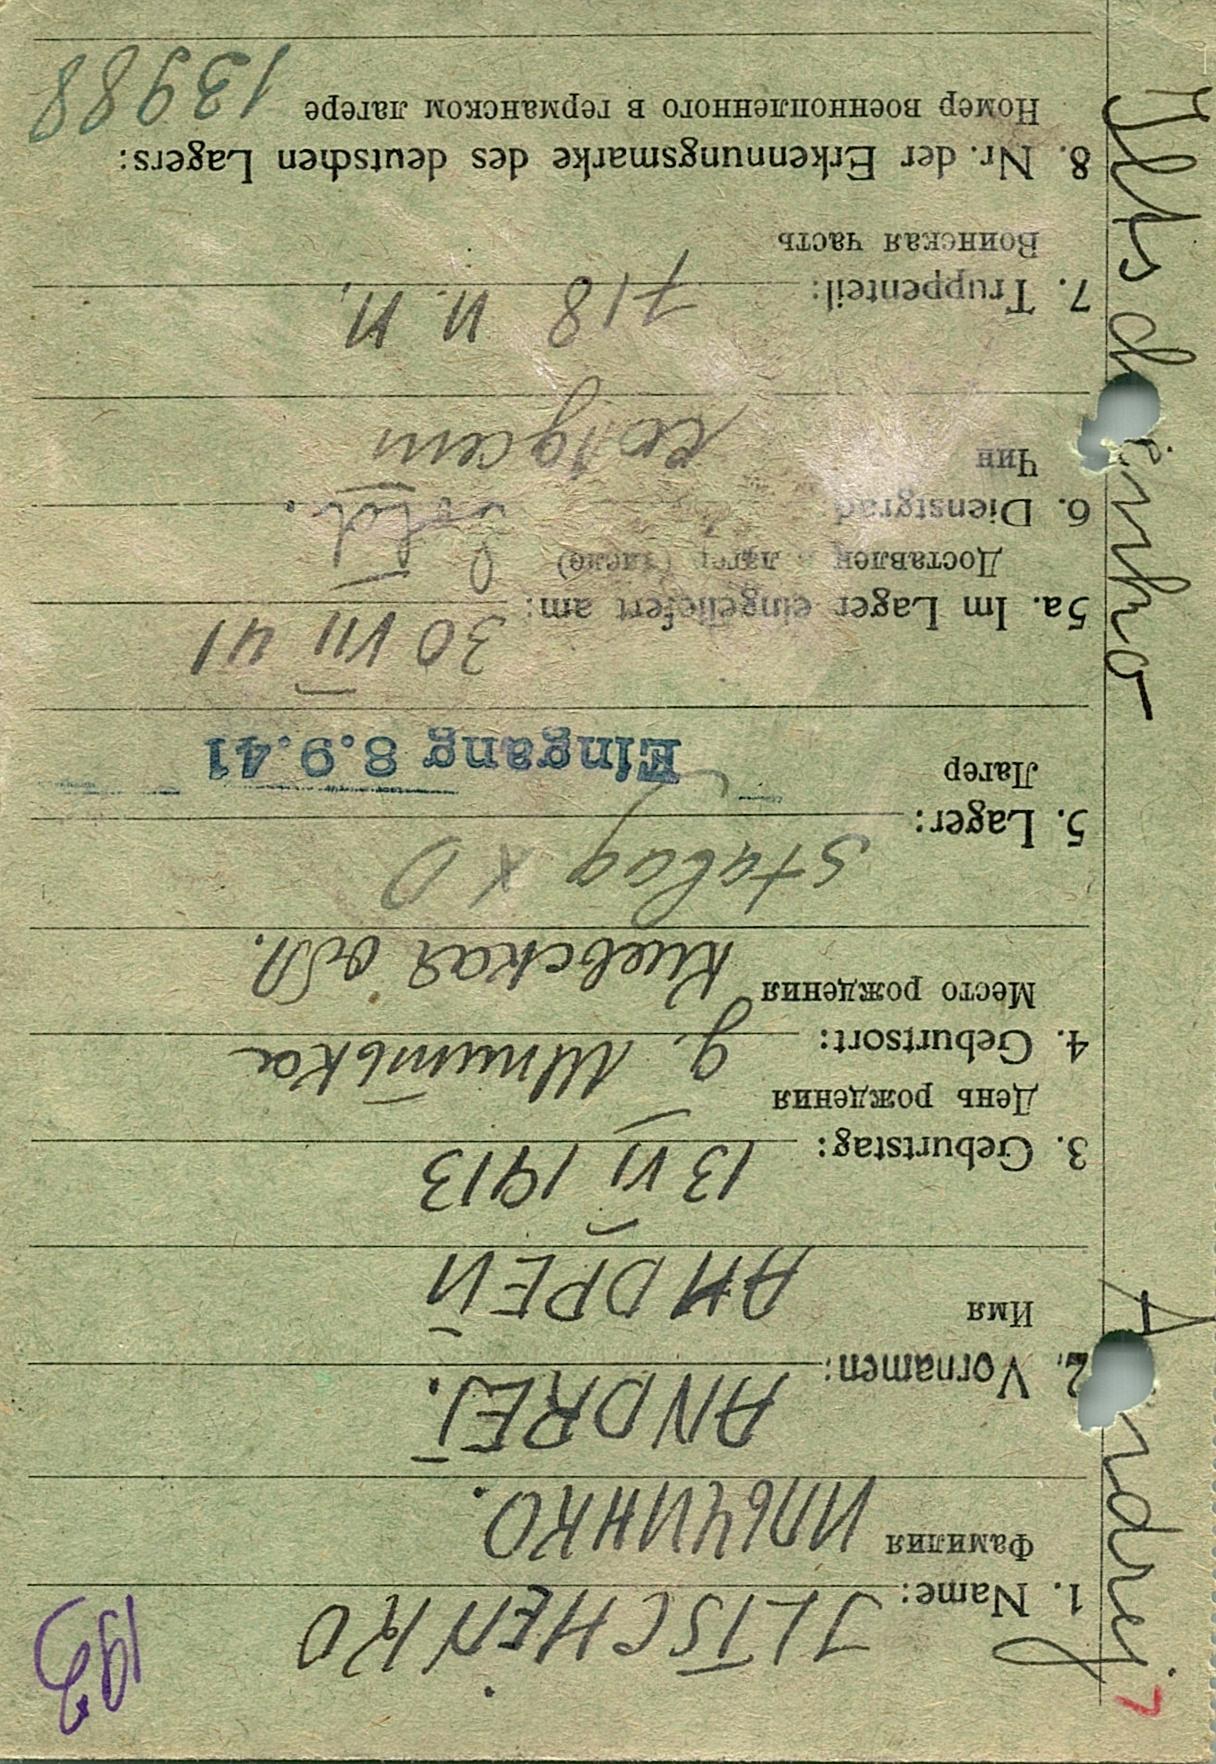 193
7
Andrej
Iltschenko
1. Name: JLTSCHENKO
Фамилия ИЛЬЧИНКО.
2. Vornamen: ANDREJ.
Имя АНДРЕЙ
3. Geburtstag: 13 VI 1913
День рождения
4. Geburtsort: д. Шпитька
Место рождения Киевская обл.
Stalag X D
5. Lager:
Лагер Eingang 8.9.41
5a. Im Lager eingeliefert am: 30 VII 41
Доставлен в лагер (число)
6. Dienstgrad Sold.
Чин солдат
7. Truppenteil: 718 п. п.
Воинская часть
8. Nr. der Erkennungsmarke des deutschen Lagers:
Номер военнопленного в германском лагере 13988